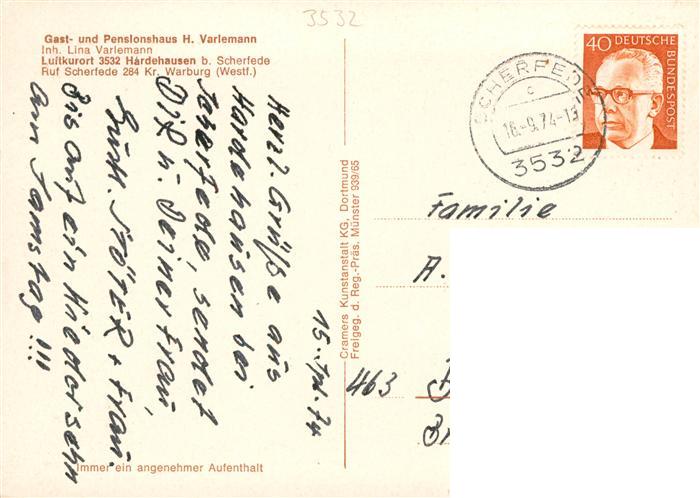 3532
Gast- und Pensionshaus H. Varlemann
Inh. Lina Varlemann
Luftkurort 3532 Hardehausen b. Scherfede
Ruf Scherfede 284 Kr. Warburg (Westf.)
15. 74
Herzl. Grüße aus
Hardehausen bei
Scherfede, sendet
Dir u. Deiner Frau,
Günt. + Frau.
Bis auf ein Wiedersehn
am Samstag !!!
Immer ein angenehmer Aufenthalt
Cramers Kunstanstalt KG, Dortmund
Freigeg. d. Reg.-Präs. Münster 939/65
40 DEUTSCHE BUNDESPOST
SCHERFEDE
c
16.-9.74-13
3532
Familie
A.
463